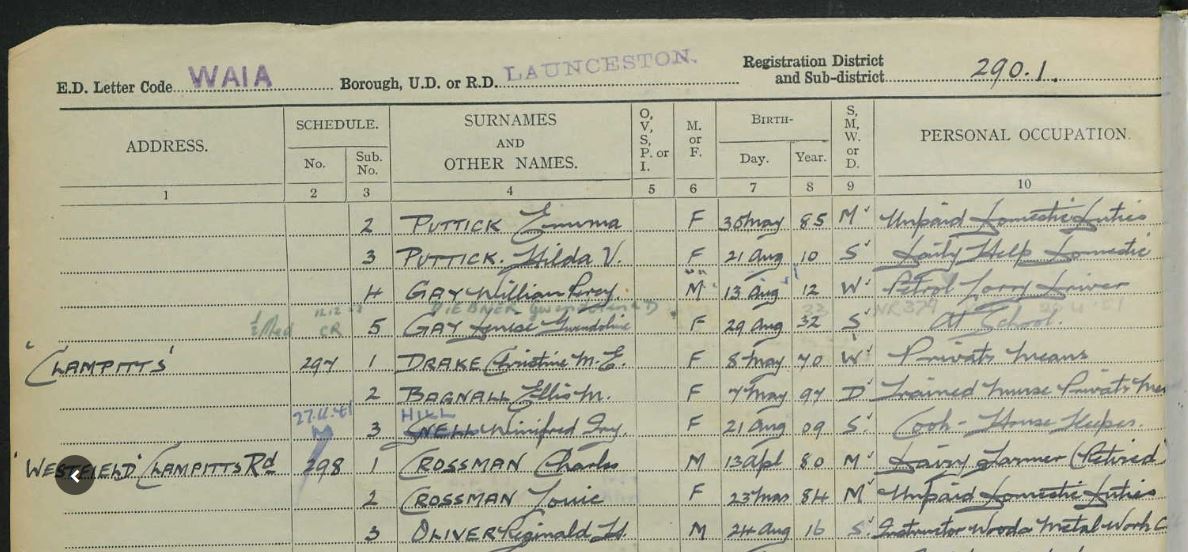 E.D. Letter Code WAIA Borough, U.D. or R.D. LAUNCESTON. Registration District and Sub-district 290.1.
ADDRESS. SCHEDULE. No. Sub. No. SURNAMES AND OTHER NAMES. O, V, S, P. or I. M. or F. BIRTH- Day. Year. S, M, W, or D. PERSONAL OCCUPATION.
1 2 3 4 5 6 7 8 9 10
2 PUTTICK Emma F 30 May 85 M Unpaid Domestic Duties
3 PUTTICK. Hilda V. F 21 Aug 10 S Daily Help Domestic
4 GAY William Percy. M 13 Aug 12 W Petrol Lorry Driver
CR 5 GAY Louise Gwendoline F 29 Aug 32 S At School.
'CLAMPITTS' 297 1 DRAKE Christine M. E. F 8 May 70 W Private Means
2 BAGNALL Ellis M. F 7 May 97 D Trained Nurse Private
27.4.41 HILL
3 SNELL Winifred Joy. F 21 Aug 09 S Cook-House Keeper.
'WESTFIELD' CLAMPITTS Rd 298 1 CROSSMAN Charles M 13 Apl 80 M Dairy Farmer (Retired)
2 CROSSMAN Louie F 23 Mar 84 M Unpaid Domestic Duties
3 OLIVER Reginald M 24 Aug 16 S Instructor Wood & Metal-Work